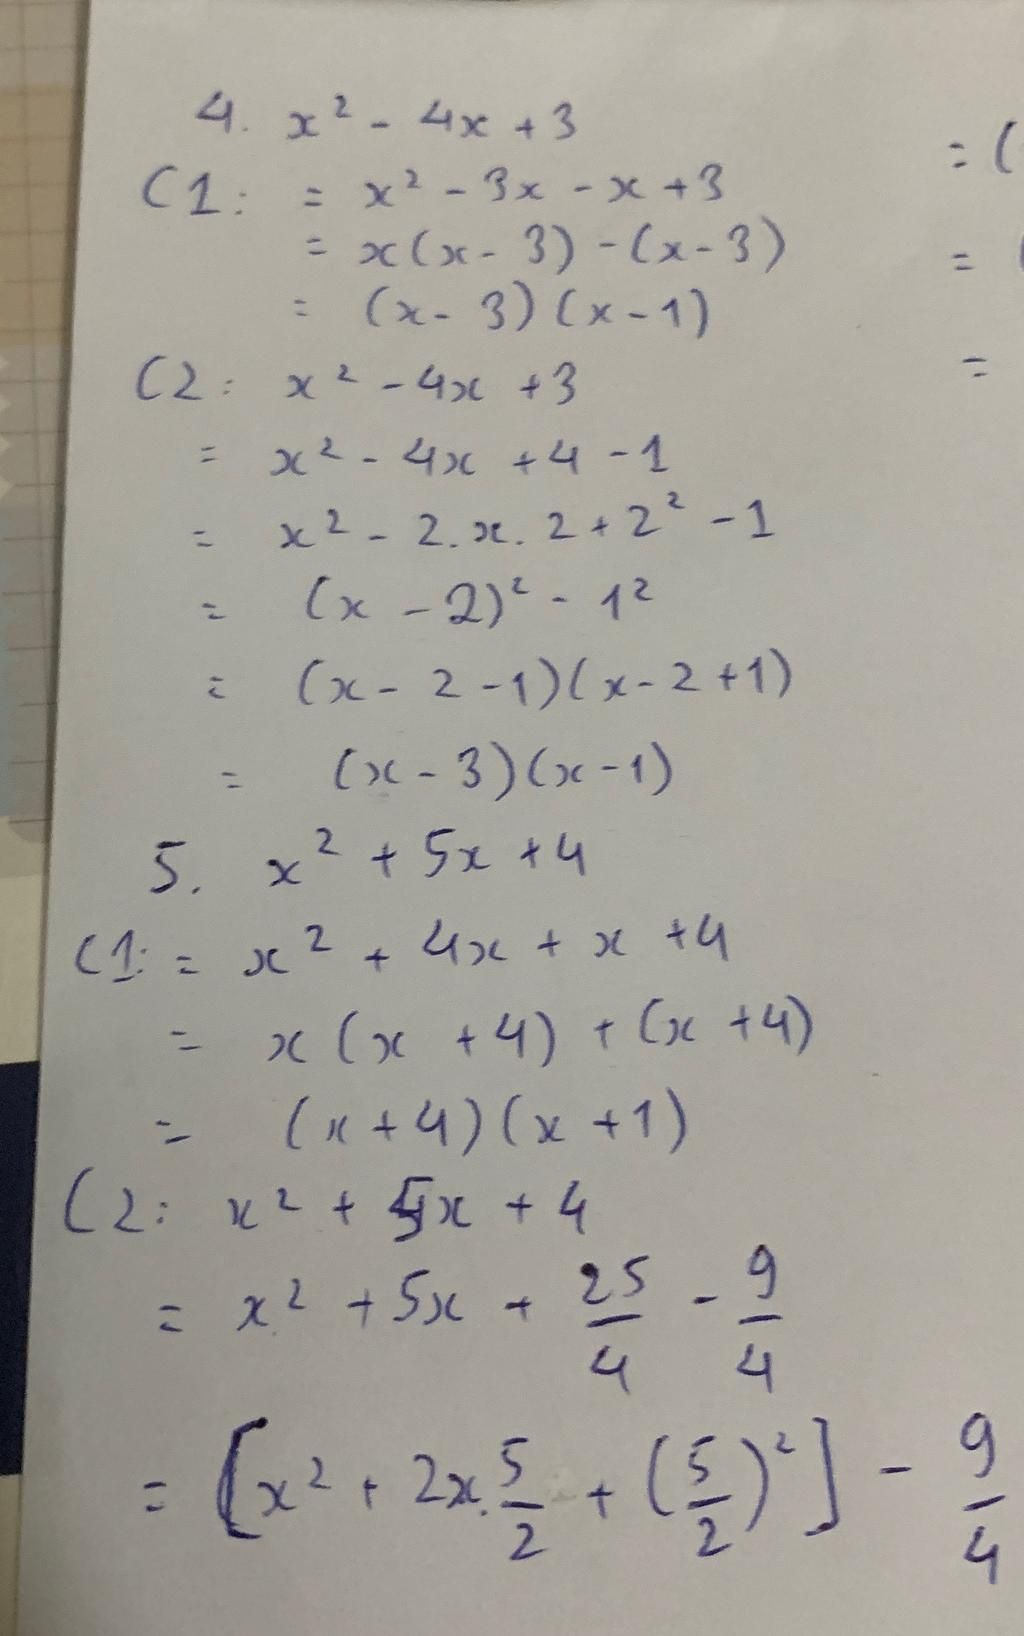 4. x² - 4x + 3
C1: = x² - 3x - x + 3
= x(x - 3) - (x - 3)
= (x - 3)(x - 1)
C2: x² - 4x + 3
= x² - 4x + 4 - 1
= x² - 2.x.2 + 2² - 1
= (x - 2)² - 1²
= (x - 2 - 1)(x - 2 + 1)
= (x - 3)(x - 1)
5. x² + 5x + 4
C1: = x² + 4x + x + 4
= x(x + 4) + (x + 4)
= (x + 4)(x + 1)
C2: x² + 5x + 4
= x² + 5x + 25/4 - 9/4
= [x² + 2x.5/2 + (5/2)²] - 9/4
= (
= (
=